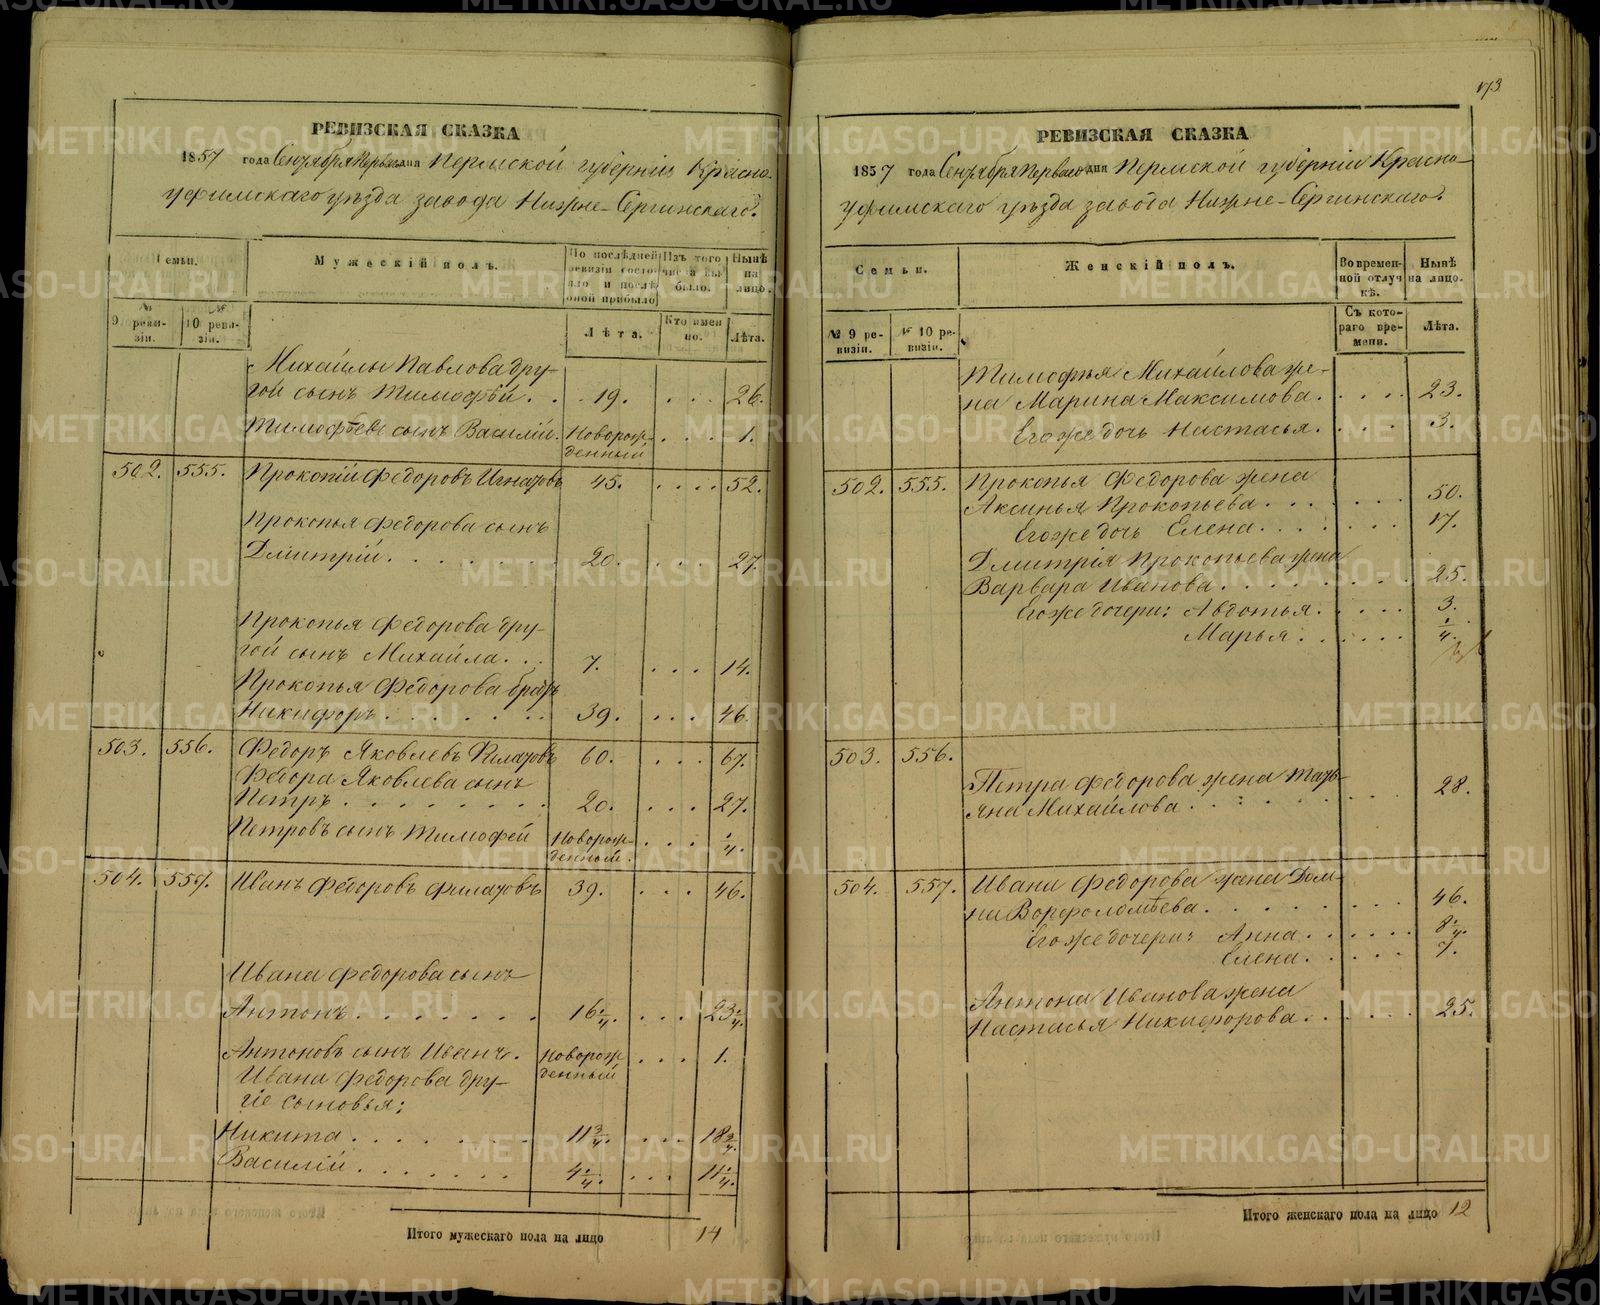 РЕВИЗСКАЯ СКАЗКА
1857 года Сентября Перваго дня Пермской губернiи Красно-
уфимскаго уѣзда завода Нижне-Сергинскаго.
Семьи.
Мужескiй полъ.
По послѣдней ревизiи состояло и послѣ оной прибыло
Изъ того числа выбыло.
Нынѣ на лицо.
№ 9 ревизiи.
№ 10 ревизiи.
Лѣта.
Кто именно.
Лѣта.
Михайлы Павлова дру-
гой сынъ Тимофѣй . . 19. . . . 26.
Тимофѣевъ сынъ Василiй. Новорож- . . . 1.
денный
502. 555. Прокопiй Федоровъ Игнатовъ 45. . . . . 52.
Прокопья Федорова сынъ
Дмитрiй. . . . . . 20. . . . 27.
Прокопья Федорова дру-
гой сынъ Михайла. . . 7. . . . 14.
Прокопья Федорова братъ
Никифоръ. . . . . . . 39. . . . 46.
503. 556. Федоръ Яковлевъ Филатовъ 60. . . . 67.
Федора Яковлева сынъ
Петръ . . . . . . . . 20. . . . 27.
Петровъ сынъ Тимофей Новорож- . . . 1/4.
денный.
504. 557. Иванъ Федоровъ Филатовъ 39. . . . 46.
Ивана Федорова сынъ
Антонъ. . . . . . . . 16 1/4. . . . 23 1/4.
Антоновъ сынъ Иванъ. Новорож . . . 1.
денный
Ивана Федорова дру-
гiе сыновья:
Никита . . . . . . . 11 3/4. . . . 18 3/4.
Василiй . . . . . . . 4 1/4. . . . 11 1/4.
Итого мужескаго пола на лицо 14
173
РЕВИЗСКАЯ СКАЗКА
1857 года Сентября Перваго дня Пермской губернiи Красно-
уфимскаго уѣзда завода Нижне-Сергинскаго.
Семьи.
Женскiй полъ.
Во временной отлучкѣ.
Нынѣ на лицо.
№ 9 ревизiи.
№ 10 ревизiи.
Съ котораго времени.
Лѣта.
Тимофѣя Михайлова же-
на Марина Максимова. . . . . 23.
Егоже дочь Настасья. . . . . 3.
502. 555. Прокопья Федорова жена
Аксинья Прокопьева. . . . . . 50.
Егоже дочь Елена. . . . . . 17.
Дмитрiя Прокопьева жена
Варвара Иванова. . . . . . . 25.
Егоже дочери: Авдотья. . . . . 3.
Марья. . . . . . 1/4.
503. 556.
Петра Федорова жена Тать-
яна Михайлова . . . . . . 28.
504. 557. Ивана Федорова жена Дом-
на Ворфоломѣева. . . . . . . 46.
Егоже дочери: Анна. . . . . . 8 1/4.
Елена. . . . . . 7.
Антона Иванова жена
Настасья Никифорова. . . . . . 25.
Итого женскаго пола на лицо 12
METRIKI.GASO-URAL.RU